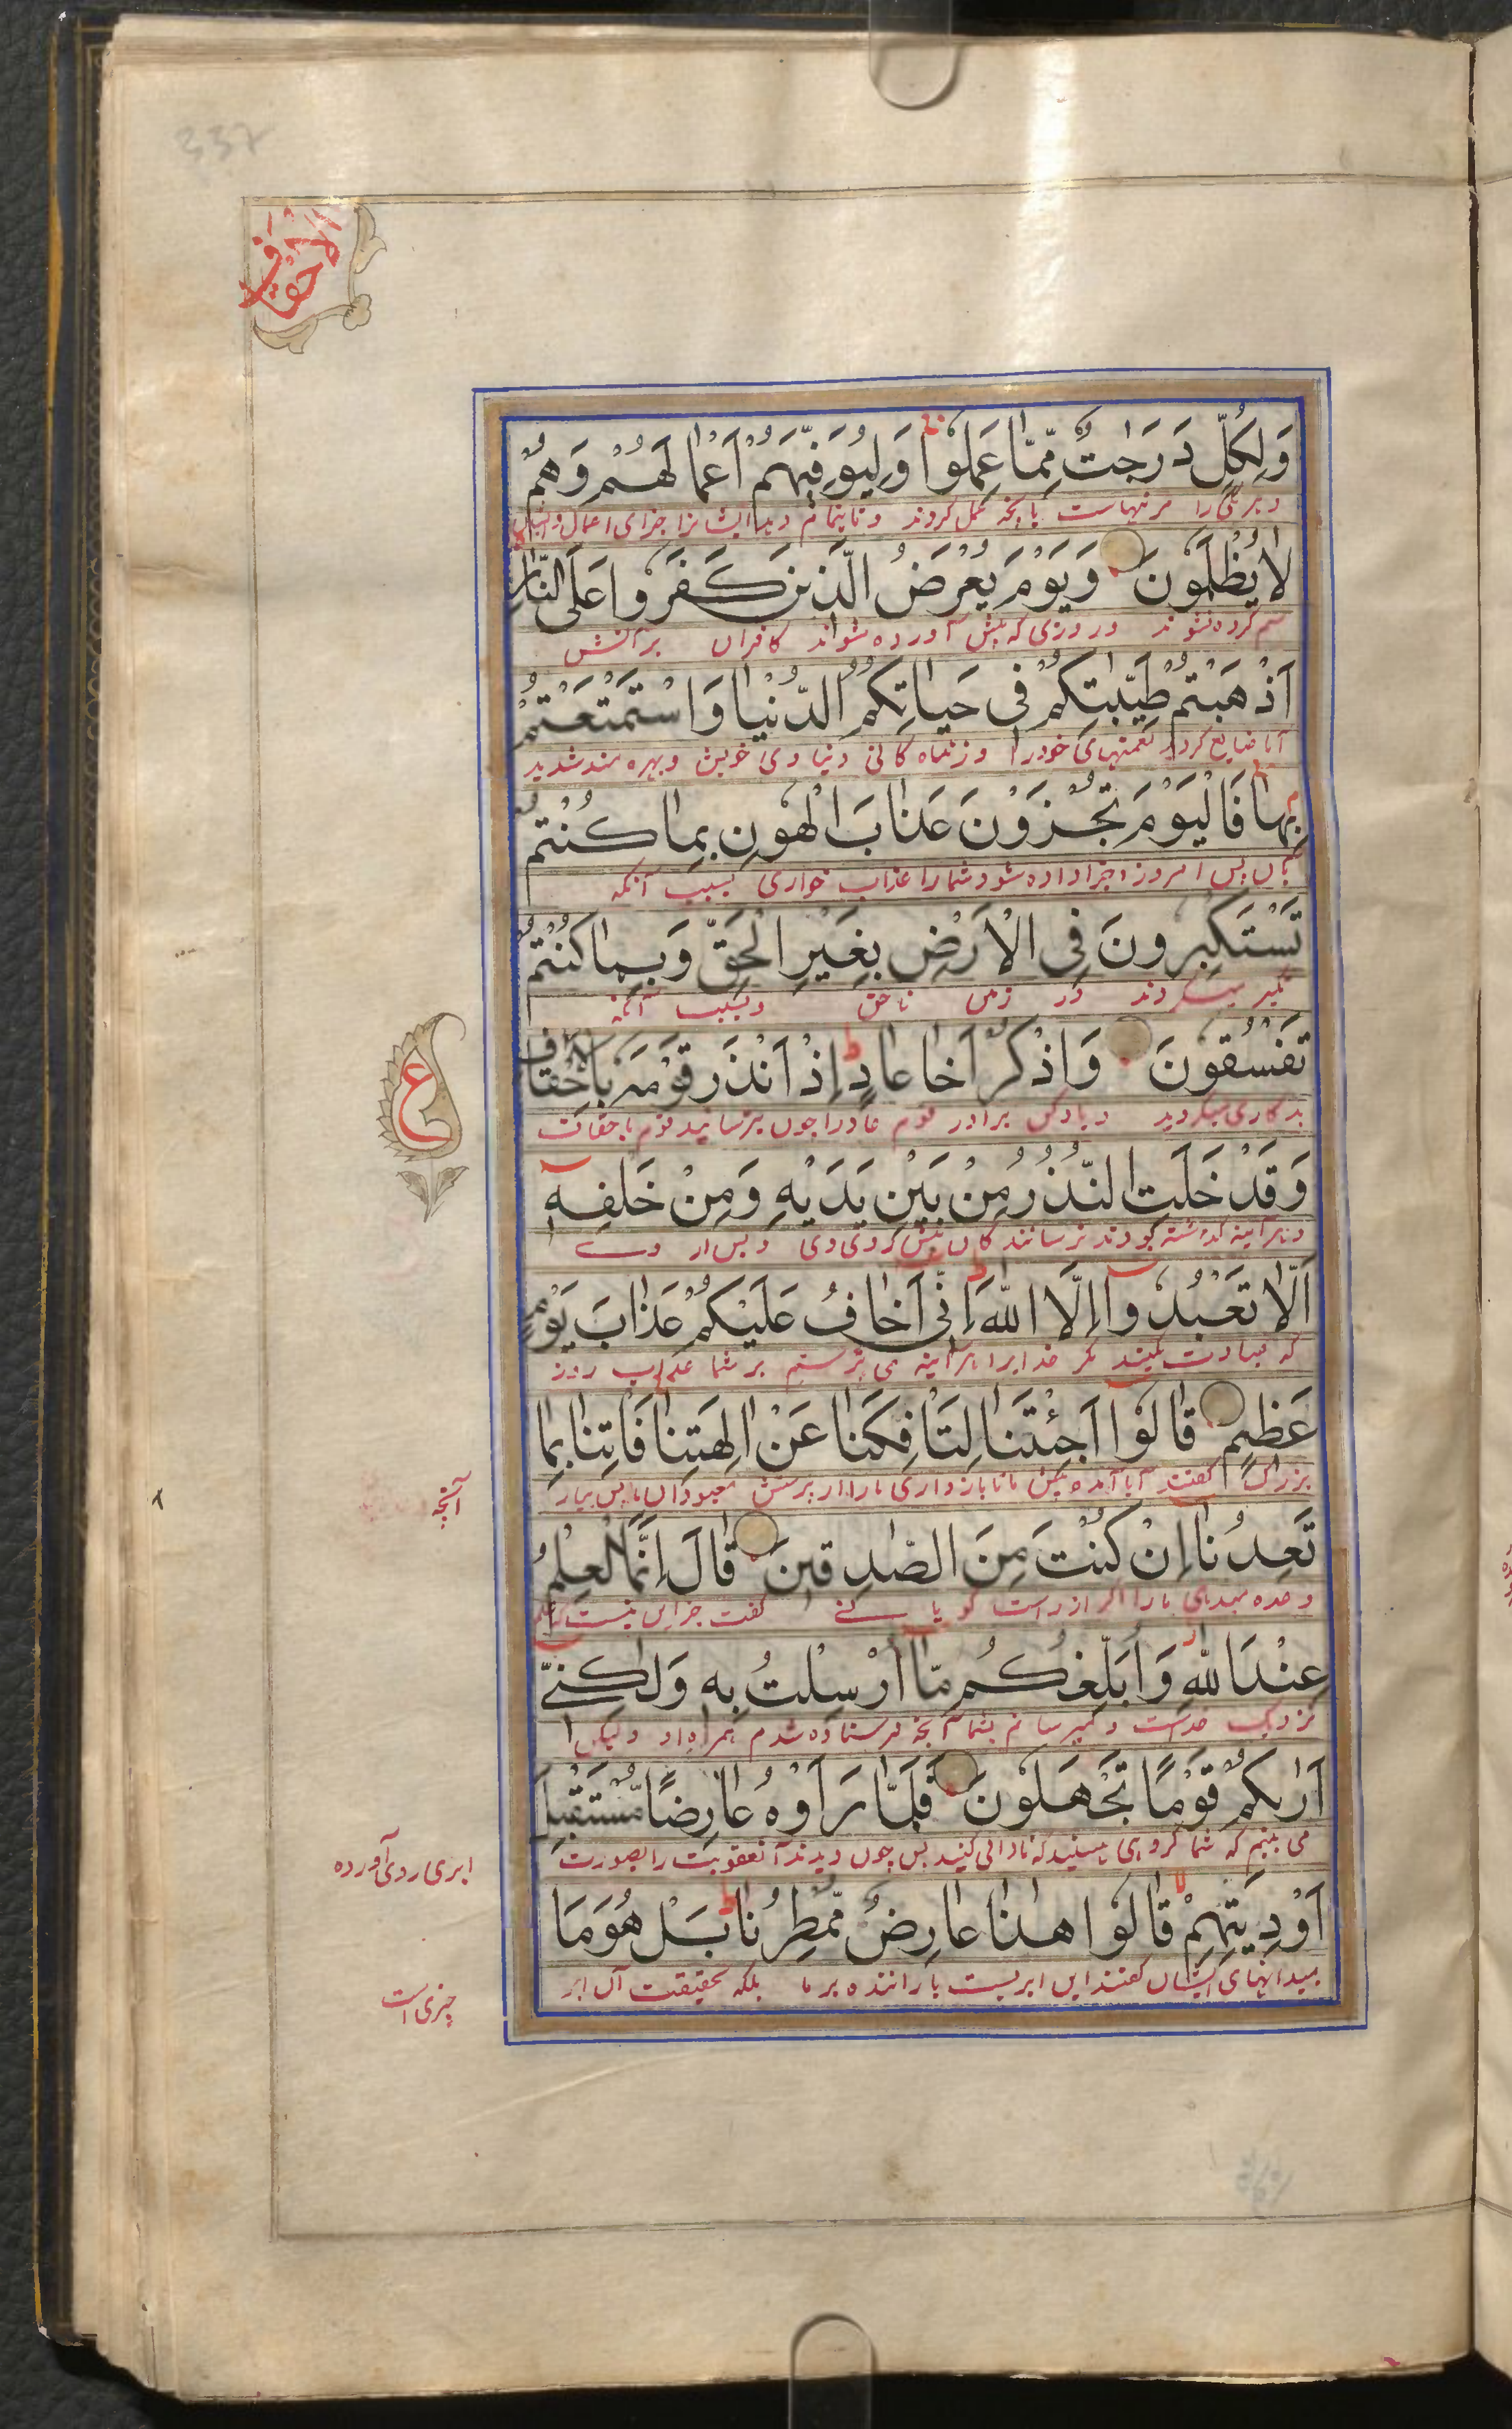 337
الاحقاف
وَلِكُلٍّ دَرَجٰتٌ مِّمَّا عَمِلُوا وَلِيُوَفِّيَهُمْ اَعْمَالَهُمْ وَهُمْ
لَا يُظْلَمُونَ وَيَوْمَ يُعْرَضُ الَّذِينَ كَفَرُوا عَلَى النَّارِ
ستم کرده نشوند و روزی که پیش آورده شوند کافران بر آتش
اَذْهَبْتُمْ طَيِّبٰتِكُمْ فِى حَيَاتِكُمُ الدُّنْيَا وَاسْتَمْتَعْتُمْ
آیا ضایع کردید نعمتهای خود را در زندگانی دنیاوی خویش و بهره مند شدید
بِهَا فَالْيَوْمَ تُجْزَوْنَ عَذَابَ الْهُونِ بِمَا كُنْتُمْ
بآن پس امروز جزا داده شود شما را عذاب خواری بسبب آنکه
تَسْتَكْبِرُونَ فِى الْاَرْضِ بِغَيْرِ الْحَقِّ وَبِمَا كُنْتُمْ
تکبر میکردند در زمین ناحق و بسبب آنکه
تَفْسُقُونَ وَاذْكُرْ اَخَا عَادٍ اِذْ اَنْذَرَ قَوْمَهٗ بِالْاَحْقَافِ
ع
بدکاری میکردید و یاد کن برادر قوم عاد را چون بترسانید قوم باحقاف
وَقَدْ خَلَتِ النُّذُرُ مِنْ بَيْنِ يَدَيْهِ وَمِنْ خَلْفِهٖ
و هر آینه گذشته بودند ترسانندگان پیش روی وی و پس از وے
اَلَّا تَعْبُدُوآ اِلَّا اللّٰهَ اِنِّى اَخَافُ عَلَيْكُمْ عَذَابَ يَوْمٍ
که عبادت مکنید مگر خدا را هر آینه می ترسم بر شما عذاب روز
عَظِيمٍ قَالُوْا اَجِئْتَنَا لِتَاْفِكَنَا عَنْ اٰلِهَتِنَا فَاْتِنَا بِمَا
بزرگ گفتند آیا آمده پیش ما تا بازداری ما را از پرستش معبودان ما پس بیار
آنچه
تَعِدُنَا اِنْ كُنْتَ مِنَ الصّٰدِقِينَ قَالَ اِنَّمَا الْعِلْمُ
وعده میدهی ما را اگر از راست گویانے گفت جز این نیست که علم
عِنْدَ اللّٰهِ وَاُبَلِّغُكُمْ مَّا اُرْسِلْتُ بِهٖ وَلٰكِنِّىٓ
نزدیک خداست و میرسانم بشما آنچه فرستاده شدم همراه او ولیکن
اَرٰىكُمْ قَوْمًا تَجْهَلُونَ فَلَمَّا رَاَوْهُ عَارِضًا مُّسْتَقْبِلَ
می بینم که شما گروهی هستید که نادانی کنید پس چون دیدند آنعقوبت را بصورت
ابری روی آورده
اَوْدِيَتِهِمْ قَالُوا هٰذَا عَارِضٌ مُّمْطِرُنَا بَلْ هُوَ مَا
بمیدانهای ایشان گفتند این ابریست باراننده بر ما بلکه بحقیقت آن ابر
چیزی است